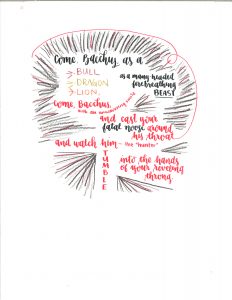 Come, Bacchus, as a
→ BULL
→ DRAGON
→ LION,
as a many-headed
firebreathing
BEAST
Come, Bacchus,
with an unwavering smile
and cast your
fatal noose around
his throat
and watch him - the "hunter"
TUMBLE
into the hands
of your reveling
throng